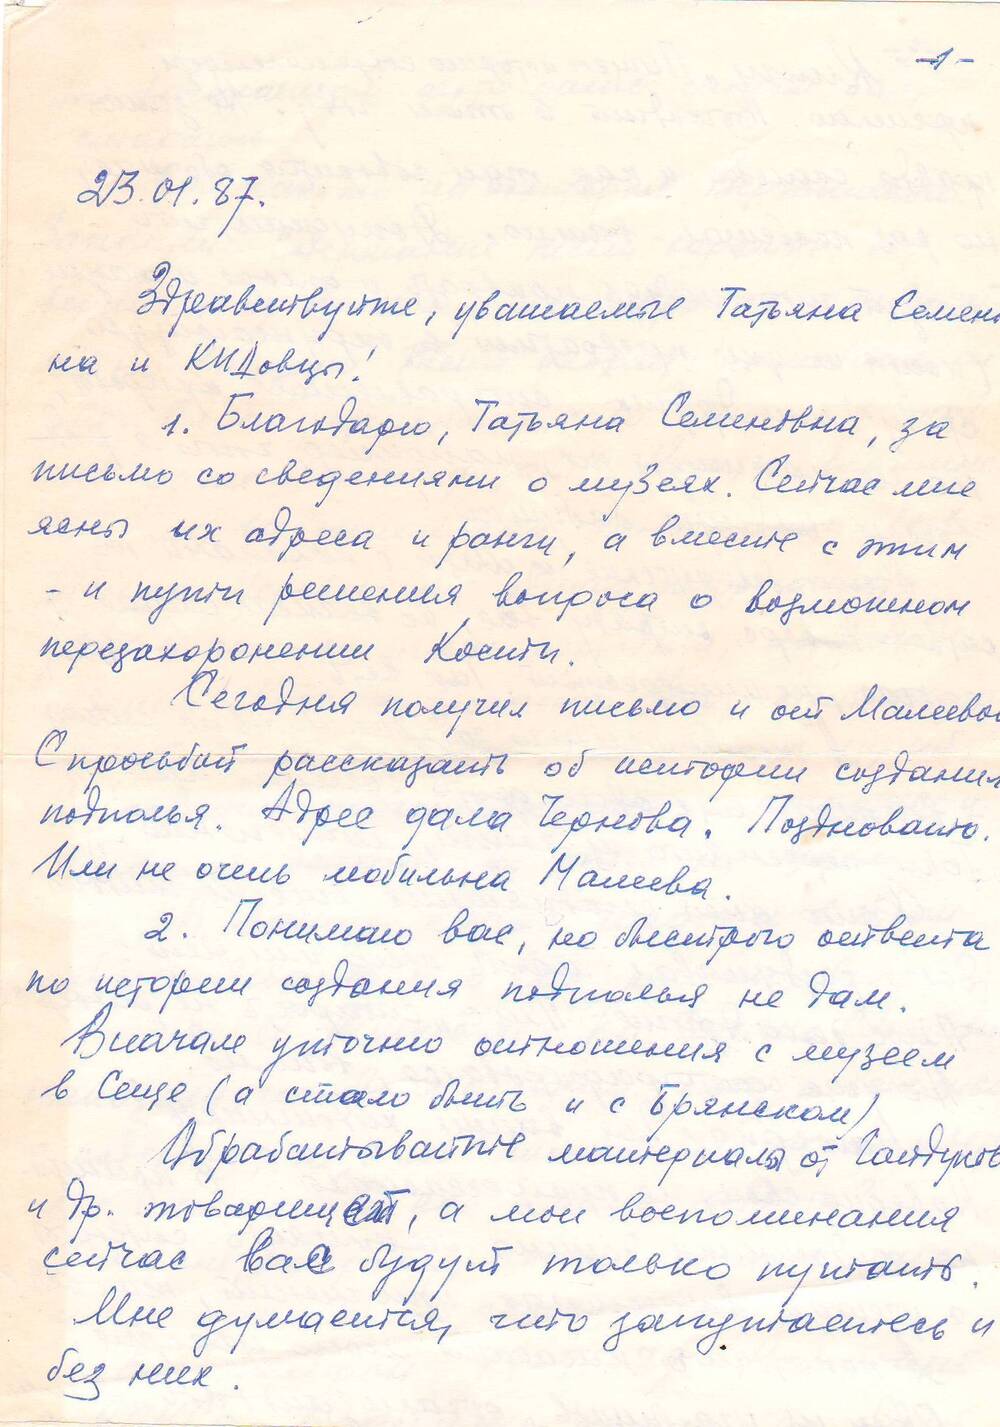 -1-
23.01.87.
Здравствуйте, уважаемые Татьяна Семенов
на и КИДовцы!
1. Благодарю, Татьяна Семеновна, за
письмо со сведениями о музеях. Сейчас мне
ясны их адреса и ранги, а вместе с этим
- и пути решения вопроса о возможном
перезахоронении Кости.
Сегодня получил письмо и от Малеевой
С просьбой рассказать об истории создания
подполья. Адрес дала Чернова. Поздновато.
Или не очень мобильна Малеева.
2. Понимаю вас, но быстрого ответа
по истории создания подполья не дам.
Вначале уточню отношения с музеем
в Сеще (а стало быть и с Брянском)
Обрабатывайте материалы от Гайдуков
и др. товарищей, а мои воспоминания
сейчас Вас будут только путать.
Мне думается, что запутаетесь и
без них.